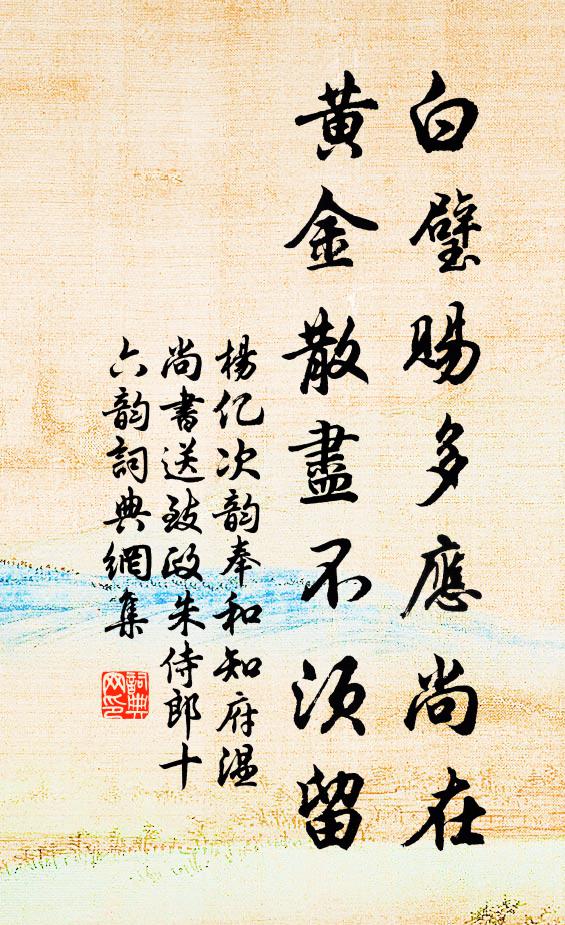 白璧賜多應尚在
黃金散盡不須留
楊億次韵奉和知府溫
尚書送致政朱侍郎十
六韵詞典網集
詞典
网印